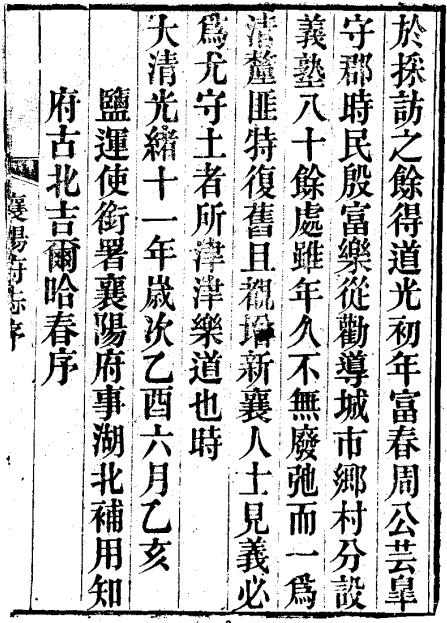 於採訪之餘得道光初年富春周公芸皐
守郡時民殷富樂從勸導城市鄉村分設
義塾八十餘處雖年久不無廢弛而一爲
清釐匪特復舊且覩增新襄人士見義必
爲尤守土者所津津樂道也時
大清光緒十一年歲次乙酉六月乙亥
鹽運使銜署襄陽府事湖北補用知
府古北吉爾哈春序
襄陽府志序